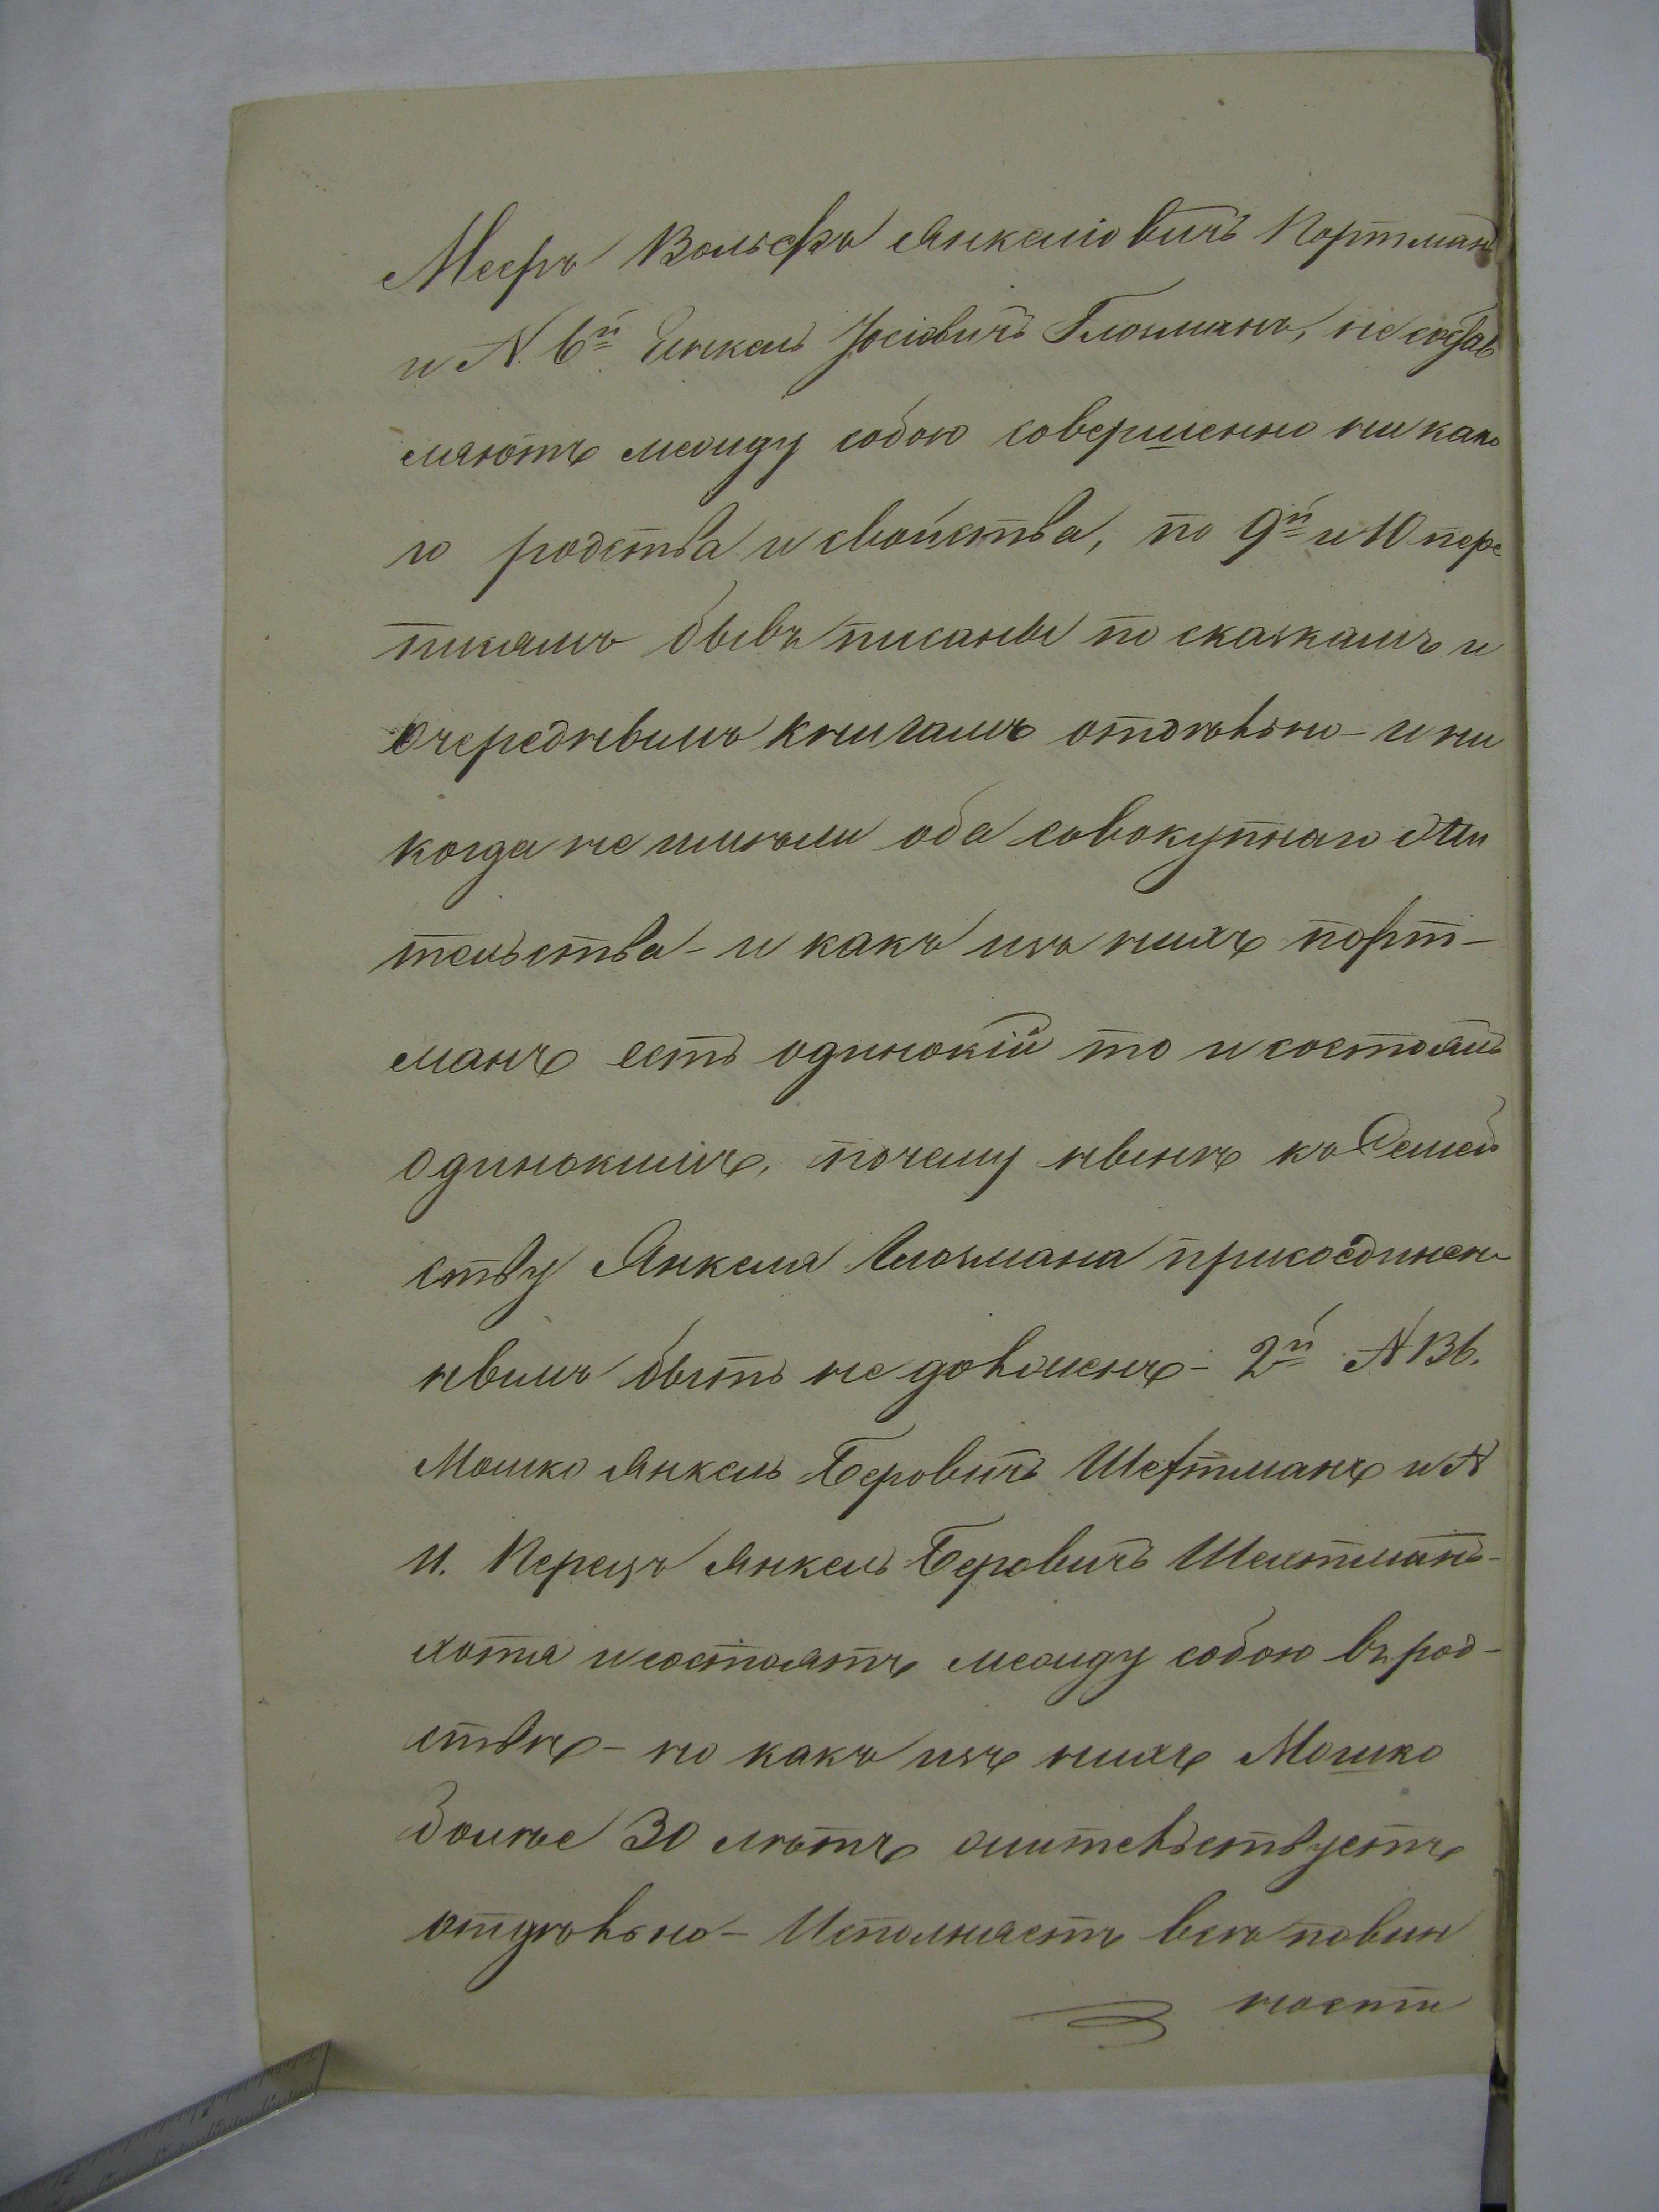 Мееръ Вольфъ Янкеліовичъ Портманъ
и N. 6й Янкель Іосіовичъ Глозманъ, не состав
ляютъ между собою совершенно никако
го родства и свойства, по 9й и 10 пере
писямъ бывъ писаны по сказкамъ и
очереднымъ книгамъ отдѣльно - и ни
когда не имѣли оба совокупнаго жи
тельства - и какъ изъ нихъ порт-
манъ есть одинокій то и состоять
одинокимъ, почему нынѣ къ Семей
ству Янкеля Глозмана присоединен
нымъ быть не долженъ - 2й N 136.
Мошко Янкель Беровичъ Шехтманъ и N
11. Перецъ Янкель Беровичъ Шехтманъ-
хотя и состоятъ между собою въ род-
ствѣ - но какъ изъ нихъ Мошко
болѣе 30 лѣтъ жительствуетъ
отдѣльно - Исполняетъ всѣ повин
ности